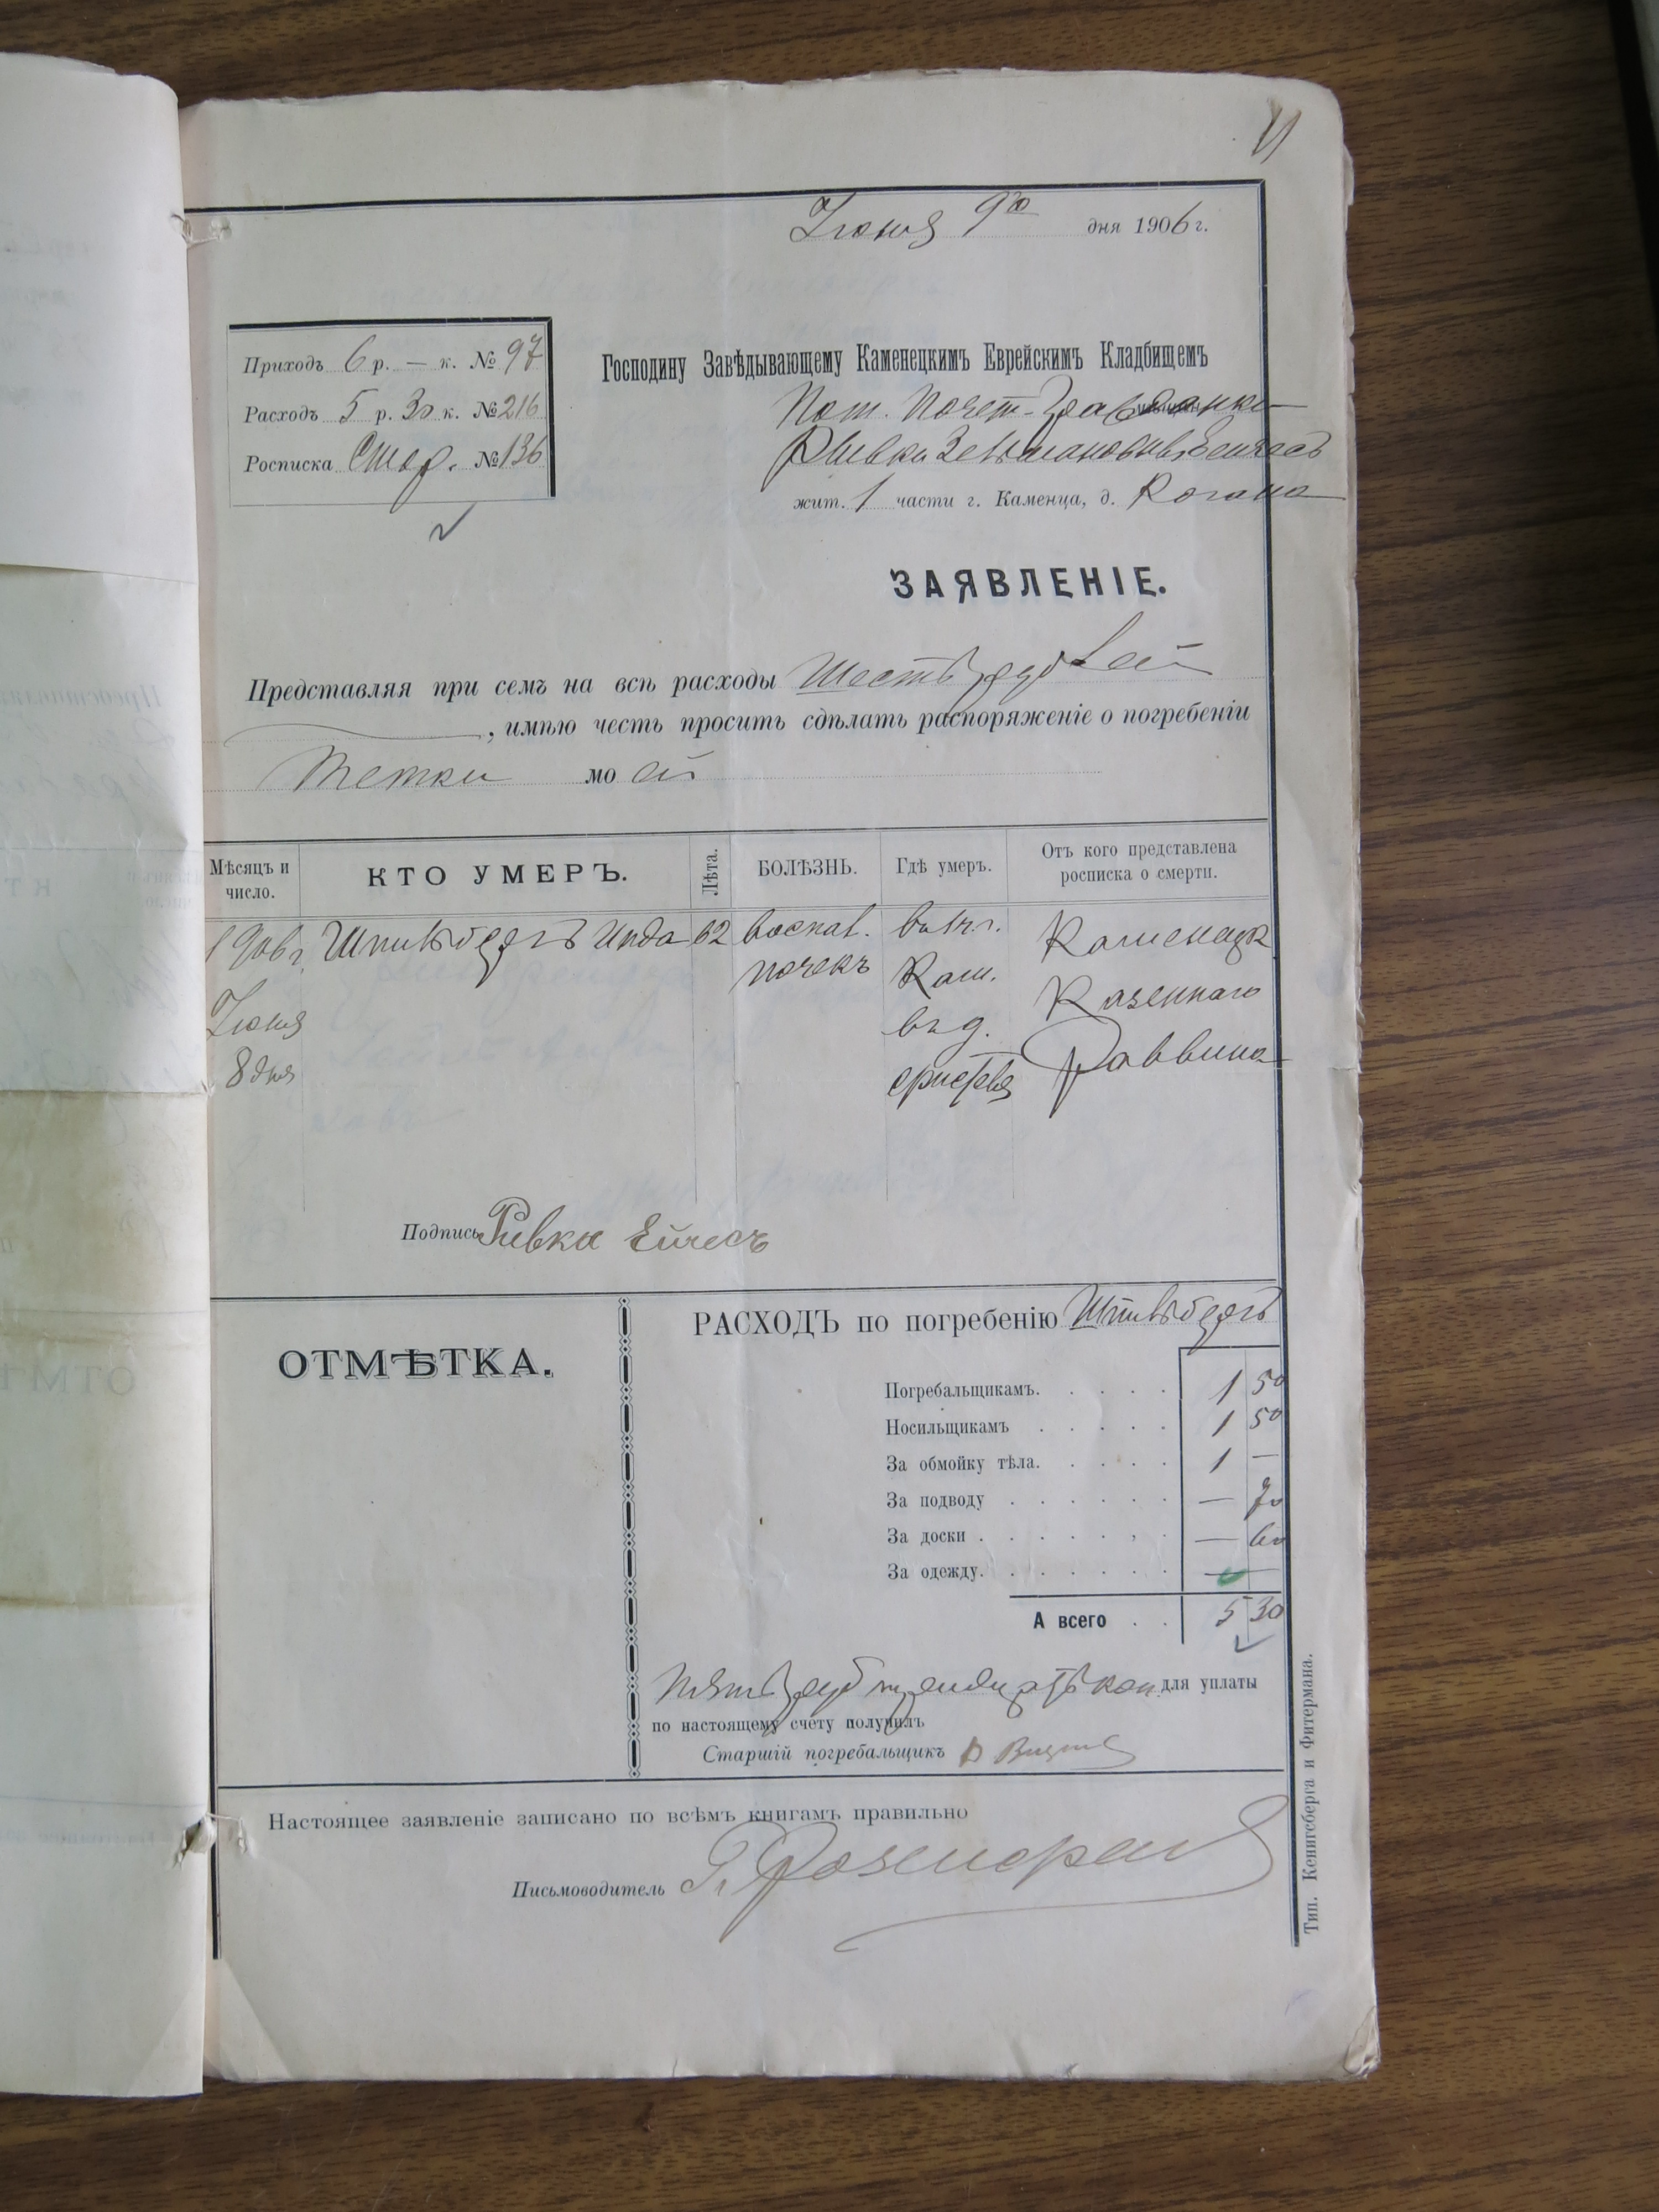 Июня 9го дня 1906 г.
Приходъ 6 р. — к. № 97
Расходъ 5 р. 30 к. № 216
Росписка Стар. № 136
Господину Завѣдывающему Каменецкимъ Еврейскимъ Кладбищемъ
Пот. Почет. Гражданки
Ривки Зельмановны Ейчесъ
жит. 1 части г. Каменца, д. Когана
ЗАЯВЛЕНІЕ.
Представляя при семъ на всѣ расходы Шесть рублей
, имѣю честь просить сдѣлать распоряженіе о погребеніи
Тетки моей
Мѣсяцъ и число.
КТО УМЕРЪ.
Лѣта.
БОЛѢЗНЬ.
Гдѣ умеръ.
Отъ кого представлена росписка о смерти.
1906 г. Июня 8 дня
Шпильбергъ Инда
62
воспал. почекъ
въ 1 ч. г. Кам. въ д.
Каменецк Казеннаго Раввина
Подпись Ривка Ейчесъ
ОТМѢТКА.
РАСХОДЪ по погребенію Шпильбергъ
Погребальщикамъ. 1 50
Носильщикамъ 1 50
За обмойку тѣла. 1 —
За подводу — 70
За доски — 60
За одежду. — —
А всего 5 30
Пять руб тридцать коп. для уплаты
по настоящему счету получилъ
Старшій погребальщикъ
Настоящее заявленіе записано по всѣмъ книгамъ правильно
Письмоводитель
Тип. Кенигсберга и Фитермана.